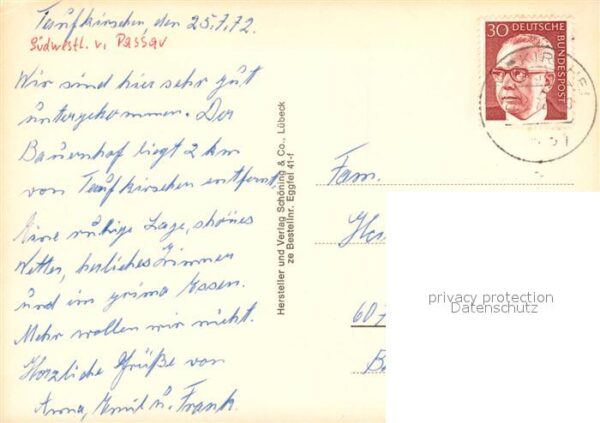 Taufkirchen den 25.7.72.
Südwestl. v. Passau
Wir sind hier sehr gut
untergekommen. Der
Bauernhof liegt 2 km
von Taufkirchen entfernt
Eine ruhige Lage, schönes
Wetter, herliches Zimmer
und im prima Essen.
Mehr wollen wir nicht.
Herzliche Grüße von
Anna, Emil u. Frank.
Hersteller und Verlag Schöning & Co., Lübeck
ze Bestellnr. Eggfel 41-f
30 DEUTSCHE
BUNDESPOST
Fam.
607
privacy protection
Datenschutz